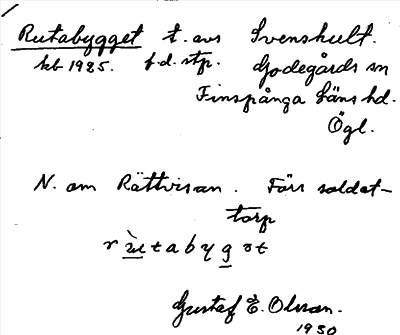 Rutabygget t. avs Svenshult.
kb 1925. f.d. stp. Godegårds sn
Finspånga läns hd.
Ögl.
N. om Rättvisan. Förr soldat-
torp
r ù t a b y g ə t
Gustaf E. Olsson.
1930